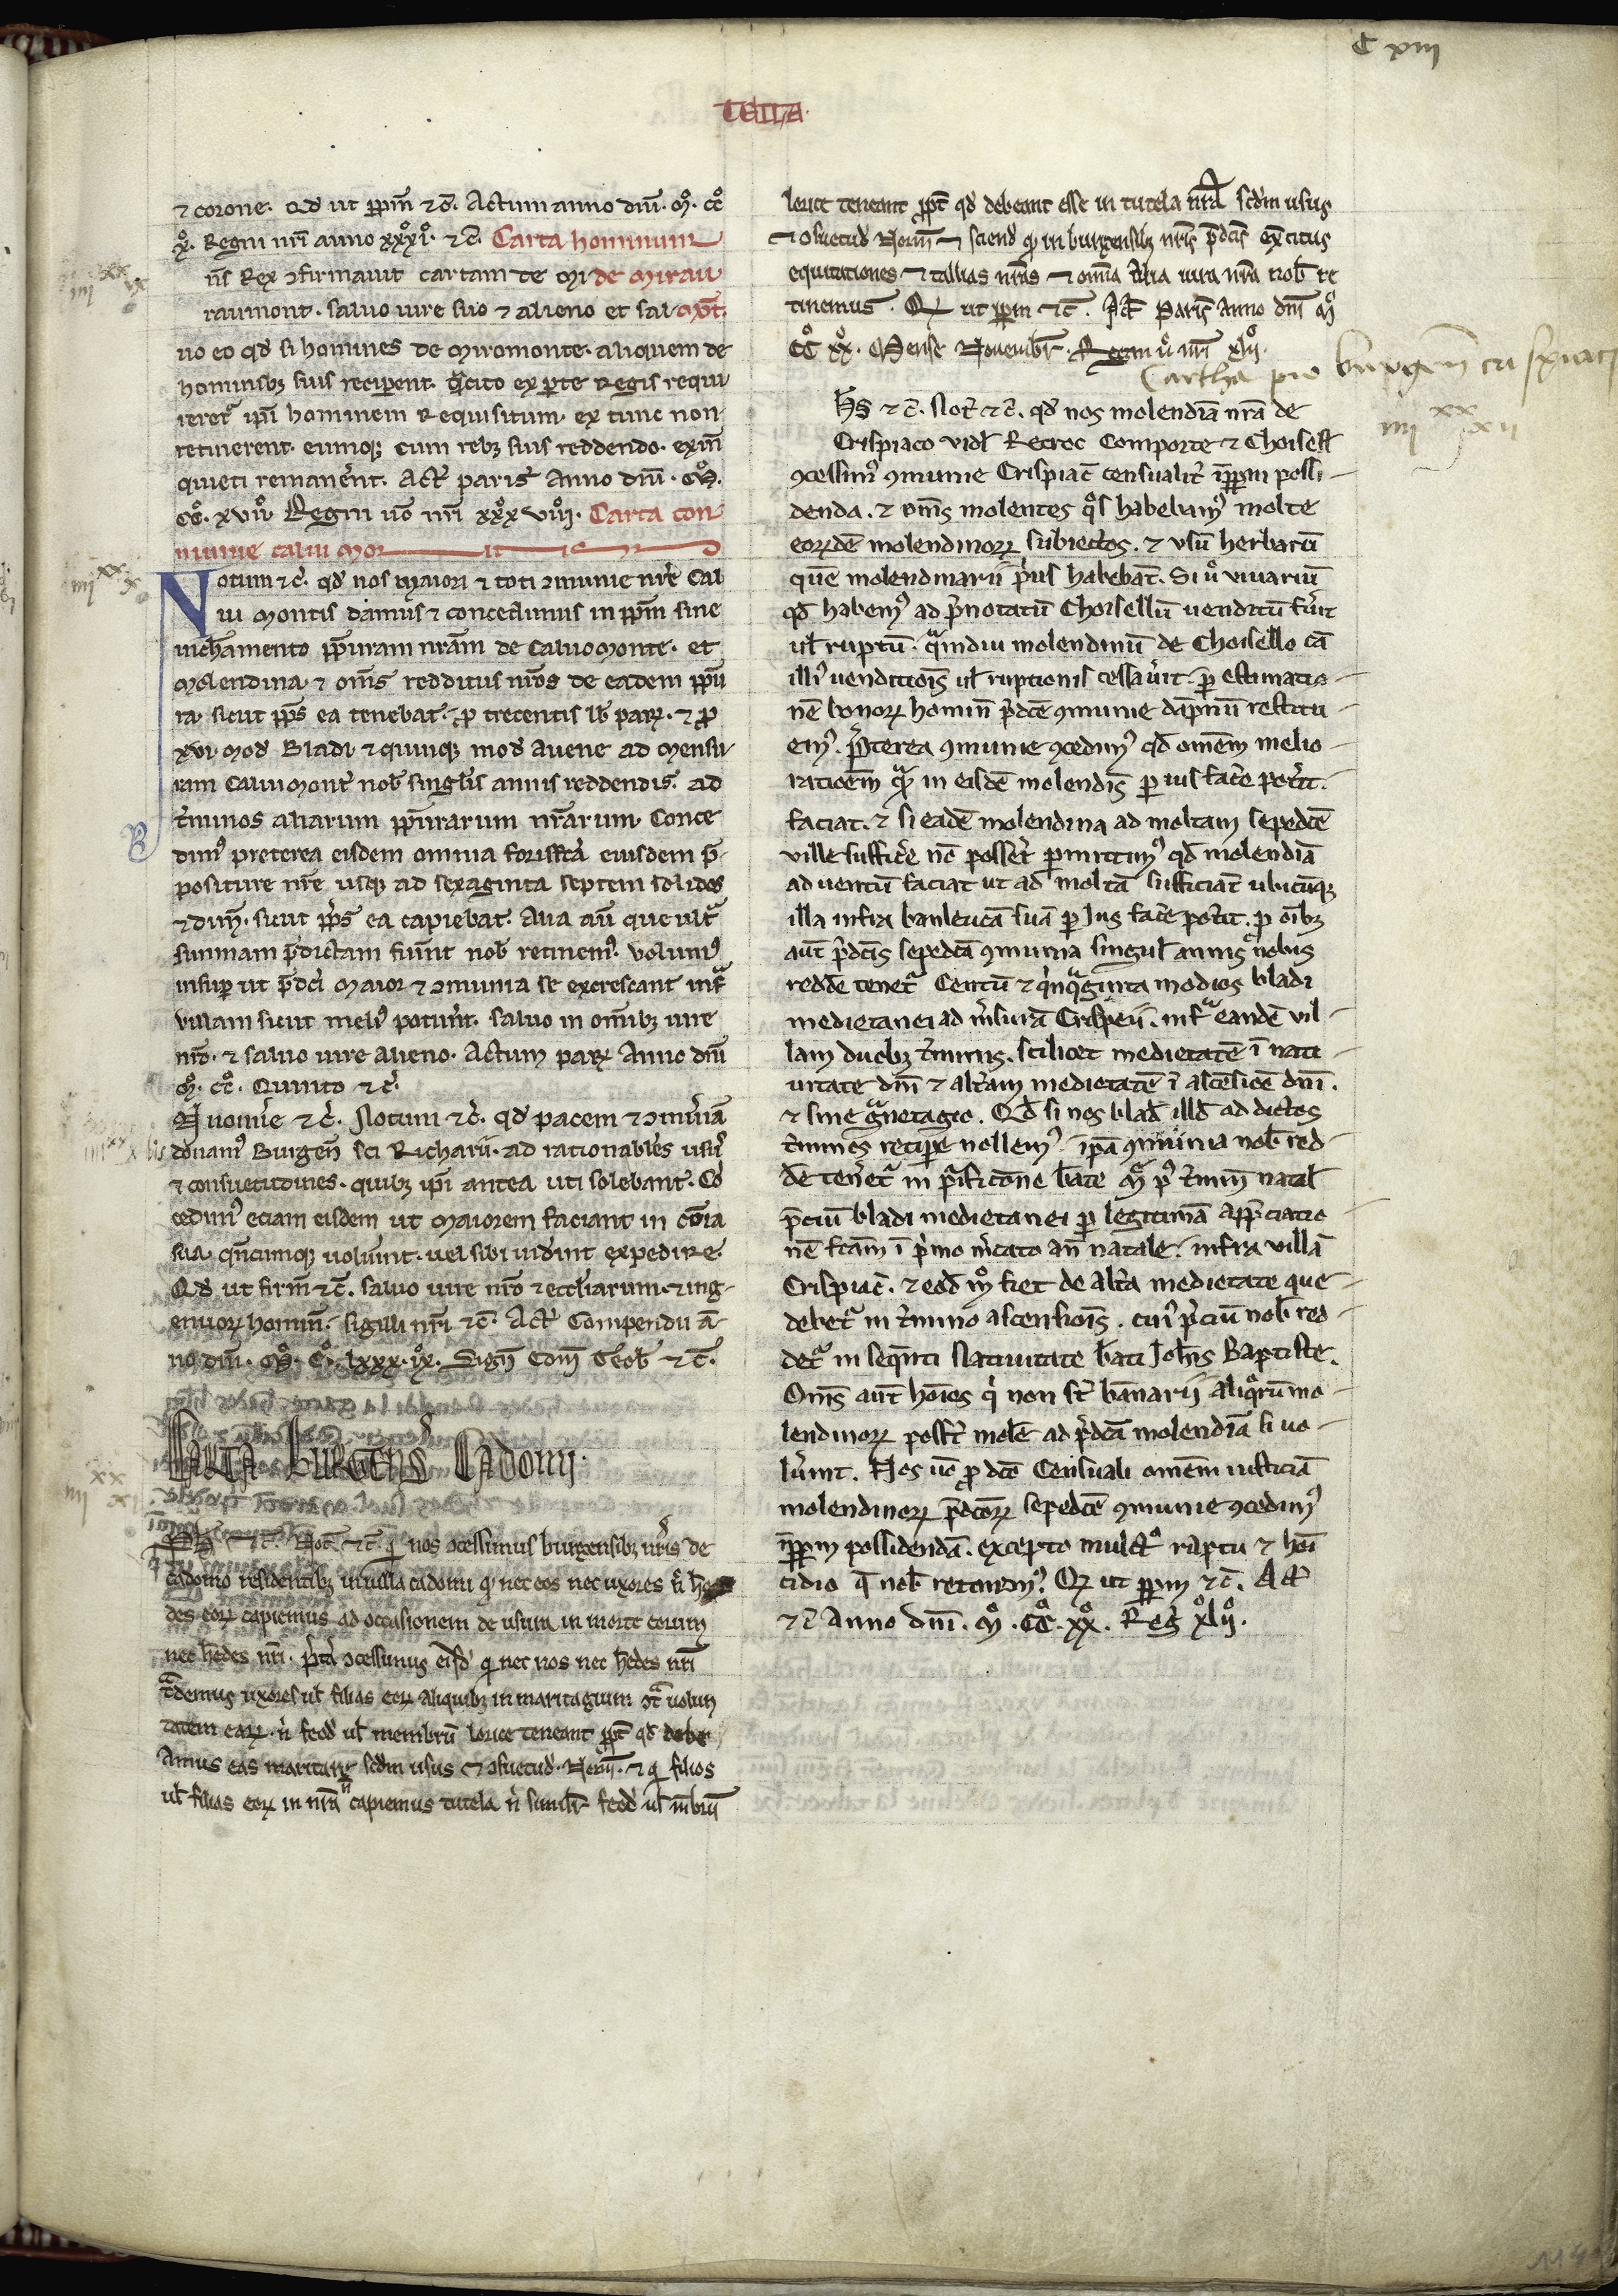 C xiii
et corone. Qđ ut ꝑpm̄ ⁊ c̄. Actum anno dn̄i. mͦ. ccͦ
xͦ. Regni nr̄i anno xxxͦiͦ. ⁊ c̄. Carta hominum
n̄s Rex ↄfirmauit cartam de Mi de Mirau
raumont. saluo iure suo ⁊ alieno et sal mōt.
uo eo qđ si homines de Miromonte. aliquem de
hominibꝫ suis reciperent. qͣcito ex ꝑte Regis requi
ieretᷣ ip̄m hominem Requisitum. ex tunc non
retinerent. eumqꝫ cum rebꝫ suis reddendo. exin̄
quieti remaner̄nt. Act̄ paris̄ Anno dn̄i. Mͦ.
CCͦ. xviiͦ. Regni uͦo nr̄i xxxͦviiiͦ. Carta com
munie calui Mon
Notum ⁊ c̄. qđ nos maiori ⁊ toti ↄmunie nr̄e Cal
ui Montis damus ⁊ concedimus in ꝑpm̄ sine
uichamento p̄pturam nr̄am de Caluomonte. et
Molendina ⁊ om̄s redditus nr̄os de eadem p̄pti
ra. sicut p̄ps̄ ea tenebat. ꝓ trecentis lb̄ parꝝ. ⁊ ꝓ
xvi. mod Bladi ⁊ quinqꝫ mod Auene ad Mensu
ram Caluimont̄ nob̄ singl̄is annis reddendis. ad
t̄minos aliarum p̄piturarum nr̄arum. Conce
dimꝰ preterea eisdem omnia forisf̄ta eiusdem p̄
positure nr̄e usqꝫ ad sexaginta septem solidos
⁊ dim̄. sicut p̄p̄s ea capiebat. Alia aū que ultͣ
summam p̄dictam fuīnt nob̄ retinemꝰ. volumꝰ
insuꝑ ut p̄dc̄i Maior ⁊ ↄmunia se excrescant infͣ
villam sicut meliꝰ potuīnt. saluo in om̄ibꝫ iure
nr̄o. ⁊ saluo iure alieno. Actum parꝝ Anno dn̄i
Mͦ. CCͦ. Quinto ⁊ c̄.
Quoniē ⁊ c̄. Notum ⁊ c̄. qđ pacem ⁊ ↄm̄iā
donamꝰ Burgen̄ sc̄i Richarii. ad rationabiles usꝰ
⁊ consuetudines. quibꝫ ip̄i antea uti solebant. Cō
cedimꝰ eciam eisdem ut Maiorem faciant in com̄ia
sua. qn̄cumqꝫ uoluīnt. uel sibi uiderint expedire.
Qđ ut firm̄ ⁊ c̄. saluo iure nr̄o ⁊ eccl̄iarum. ⁊ ing-
enuorꝝ homin̄. sigilli nr̄i ⁊ c̄. Act̄ Compendii ā-
no dn̄i. Mͦ. Cͦ. lxxx. ixͦ. Sign̄ Com̄ Teob̄ ⁊ c̄.
Carta Burgens̄ Cadomi.
Ph̄ ⁊ c̄. Not̄ ⁊ c̄. qđ nos ↄcessimus burgensibꝫ nr̄is de
cadomo residentibꝫ in uilla cadomi qđ nec eos nec uxores ul̄ he
des eorꝝ capiemus ad occasionem de usura in morte eorum
nec h̄edes nr̄i. p̄t̄a ↄcessimus eisd̄ qđ nec nos nec h̄edes nr̄i
t̄demus uxores ul̄ filias eorꝝ aliquibꝫ in maritagium ↄtͣ uolun
tatem earꝝ. n̄ feod̄ ul̄ membrū lorice teneant ꝓpt̄ qđ debe
amus eas maritare scd̄m usus ⁊ ↄsuetud̄. Norm̄. ⁊ qđ filios
ul̄ filias eorꝝ in nr̄a n̄ capiemus tutela n̄ simil̄r feod̄ ul̄ m̄brū
lorice teneant ꝓpt̄ qđ debeant esse in tutela nr̄a scd̄m usus
⁊ ↄsuetud̄ Norm̄ ⁊ sciend̄ qđ in burgensibꝫ nr̄is p̄dc̄is ex̄citus
equitationes ⁊ tallias nr̄as ⁊ om̄ia alia iura nr̄a nob̄ re
tinemus. Qđ ut ꝑpm̄ ⁊ c̄. Act̄ Paris̄ Anno dn̄i Mͦ
CCͦ xxͦ. Mense Nouembr̄. Regni uͦ nr̄i xliiͦ.
Cartha pro burgen̄ crispiaci
Ph̄s ⁊ c̄. Not̄ ⁊ c̄. qđ nos molendīa nr̄a de
Crispiaco videl̄ Retroc Comporte ⁊ Choisell̄
ꝯcessimꝰ ꝯmunie Crispiac̄ censualit̄ inꝑpm possi-
denda. ⁊ om̄s molentes qͦs habebamꝰ molte
eorꝝdē molendinorꝝ subiectos. ⁊ vsū herbarū
quē molendinarii p̄us habebāt. Si uͦ viuariū
qđ habemꝰ ad p̄notatū Choisellū uenditū fūit
ul̄ ruptū. qͣmdiu molendinū de Choisello cā
illiꝰ uenditiois̄ ul̄ ruptionis cessaūit. ꝑ estimatio-
nē bonorꝝ homin̄ p̄dc̄e ꝯmunie dāpnū restitu
emꝰ. P̄terea ꝯmunie ꝯcedimꝰ qđ omēm melio-
rationē qͣm in eisdē molendis̄ ꝑ ius face pot̄it.
faciat. ⁊ si eadē molendina ad moltam sepedc̄e
ville suffice nō possēt ꝑmittimꝰ qđ molendīa
ad uentū faciat ut ad moltā sufficiāt ubicūqꝫ
illa infra banleucā suā ꝑ Jus face pot̄it. ꝓ oīb
aut̄ p̄dc̄is sepedc̄a ꝯmunia singul̄ annis nobis
reddē tenetᷣ Centū ⁊ qͥnqͣginta modios bladi
medietanei ad m̄surā Crispeii. infͣ eandē vil-
lam duobꝫ t̄minis. scilicet medietatē ī nati-
uitate dn̄i ⁊ alt̄am medietatē ī ascēsioē dn̄i.
⁊ sine gͣnetagio. Qđ si nos blad̄ illd̄ ad dictos
t̄minos recipe nollemꝰ ip̄a ꝯmūnia nob̄ red-
dē teneretᷣ in p̄ificatione b̄ate Mͣ pꝰ t̄minū natal̄
p̄ciū bladi medietanei ꝑ legitimā app̄ciatio
nē fc̄am ī p̄mo m̄cato an̄ natale. infra villā
Crispiac̄. ⁊ eod̄ mͦ fiet de alt̄a medietate que-
debetᷣ in t̄mino ascensiois̄. cuiꝰ p̄ciū nob̄ red-
detᷣ in seqn̄ti Natiuitate b̄ati Joh̄is Baptiste.
Om̄s aut̄ hoīes qͥ non st̄ bānarii aliqͦrū mo-
lendinorꝝ posst̄ molē ad p̄dc̄a molendīa si uo-
lūint. Nos uͦo ꝓ dc̄o Censuali omēm iusticiā
molendinorꝝ p̄dc̄orꝝ sepedc̄e ꝯmunie ꝯcedimꝰ
inꝑpm possidendā. excepto multrͦ raptu ⁊ homi
cidio q̄ nob̄ retinemꝰ. Qđ ut ꝑpm ⁊ c̄. Act̄
⁊ c̄ Anno dn̄i. Mͦ. CCͦ. xxͦ. Reḡ xliiͦ.